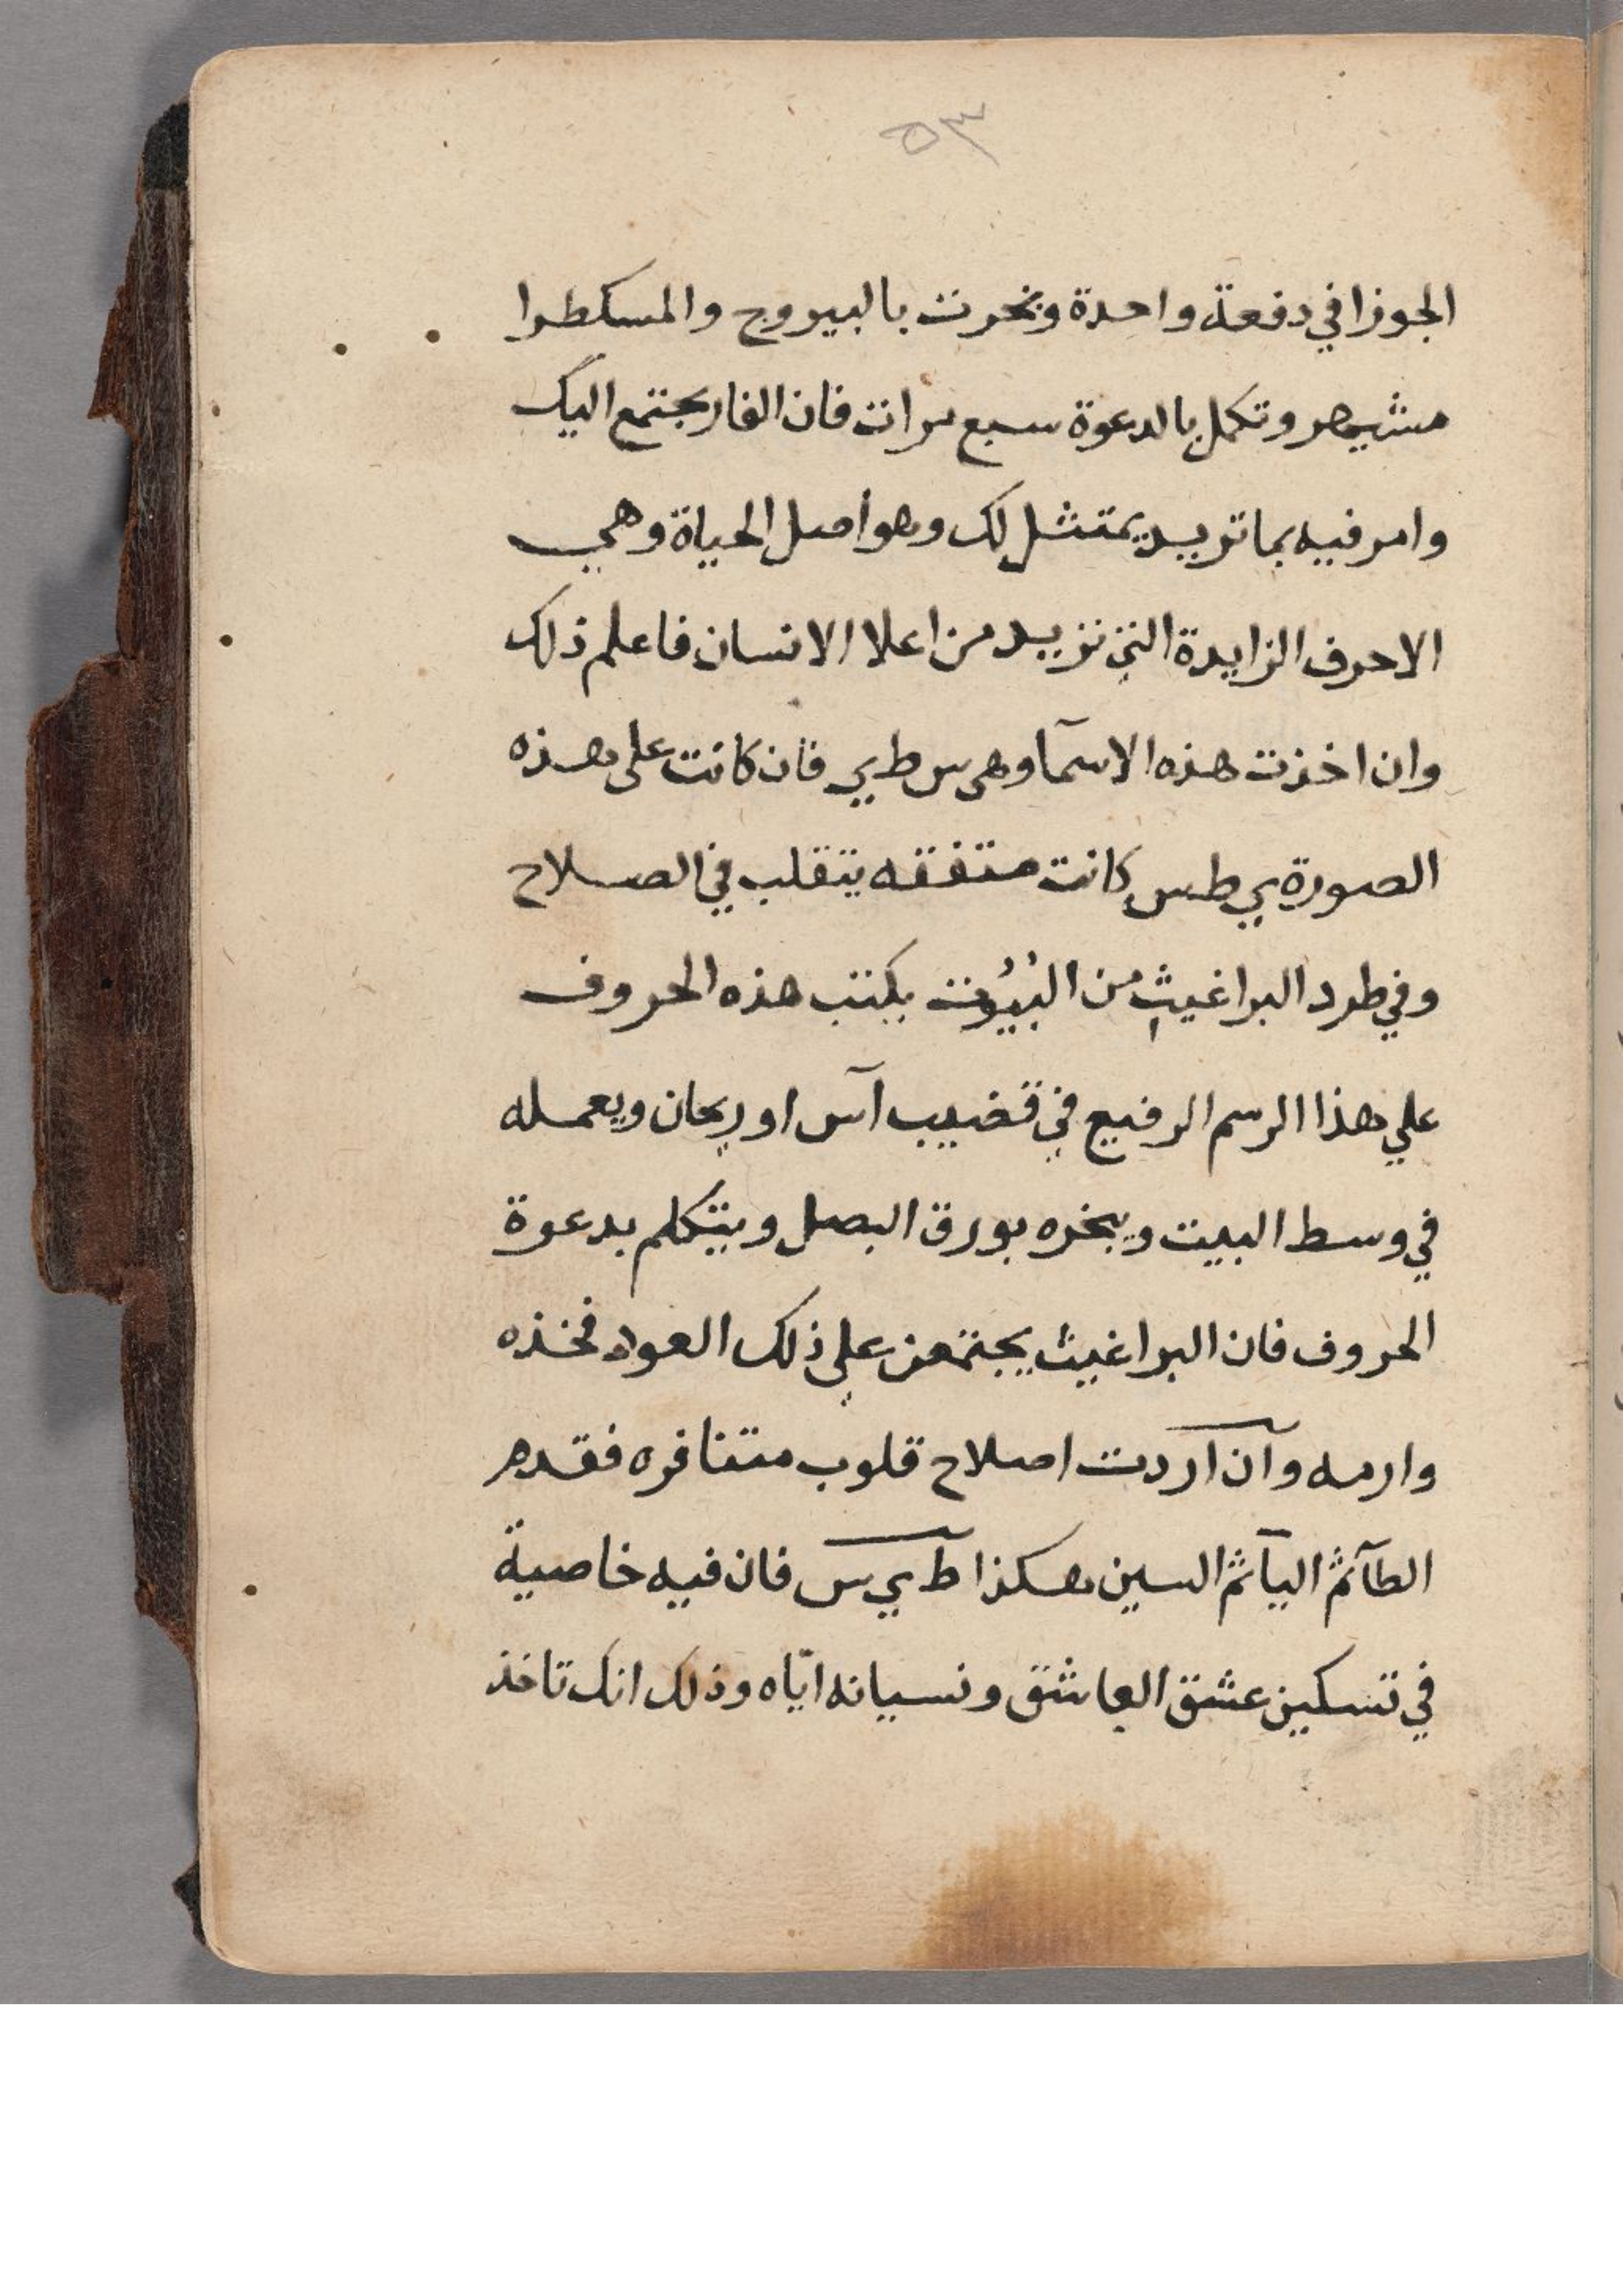 ٥٣
الجوزا في دفعة واحدة وبخرت بالبيروج والمسكطرا
مشيهر وتكمل بالدعوة سبع مرات فان الفار يجتمع اليك
وامر فيه بما تريد يمتثل لك وهو اصل الحياة وهي
الاحرف الزايدة التي تزيد من اعلا الانسان فاعلم ذلك
وان اخذت هذه الاسمآ وهي س ط ي فان كانت على هذه
الصورة ي ط س كانت متفقه يتقلب في الصلاح
وفي طرد البراغيث من البُيُوت يكتب هذه الحروف
علي هذا الرسم الرفيع في قضيب آس او ريحان ويعمله
في وسط البيت ويبخره بورق البصل ويتكلم بدعوة
الحروف فان البراغيث يجتمعن علي ذلك العود فخذه
وارمه وآن آردت اصلاح قلوب متنافره فقدم
الطآ ثم اليآ ثم السين هكذا ط ي س فان فيه خاصية
في تسكين عشق العاشق ونسيانه ايّاه وذلك انك تاخذ